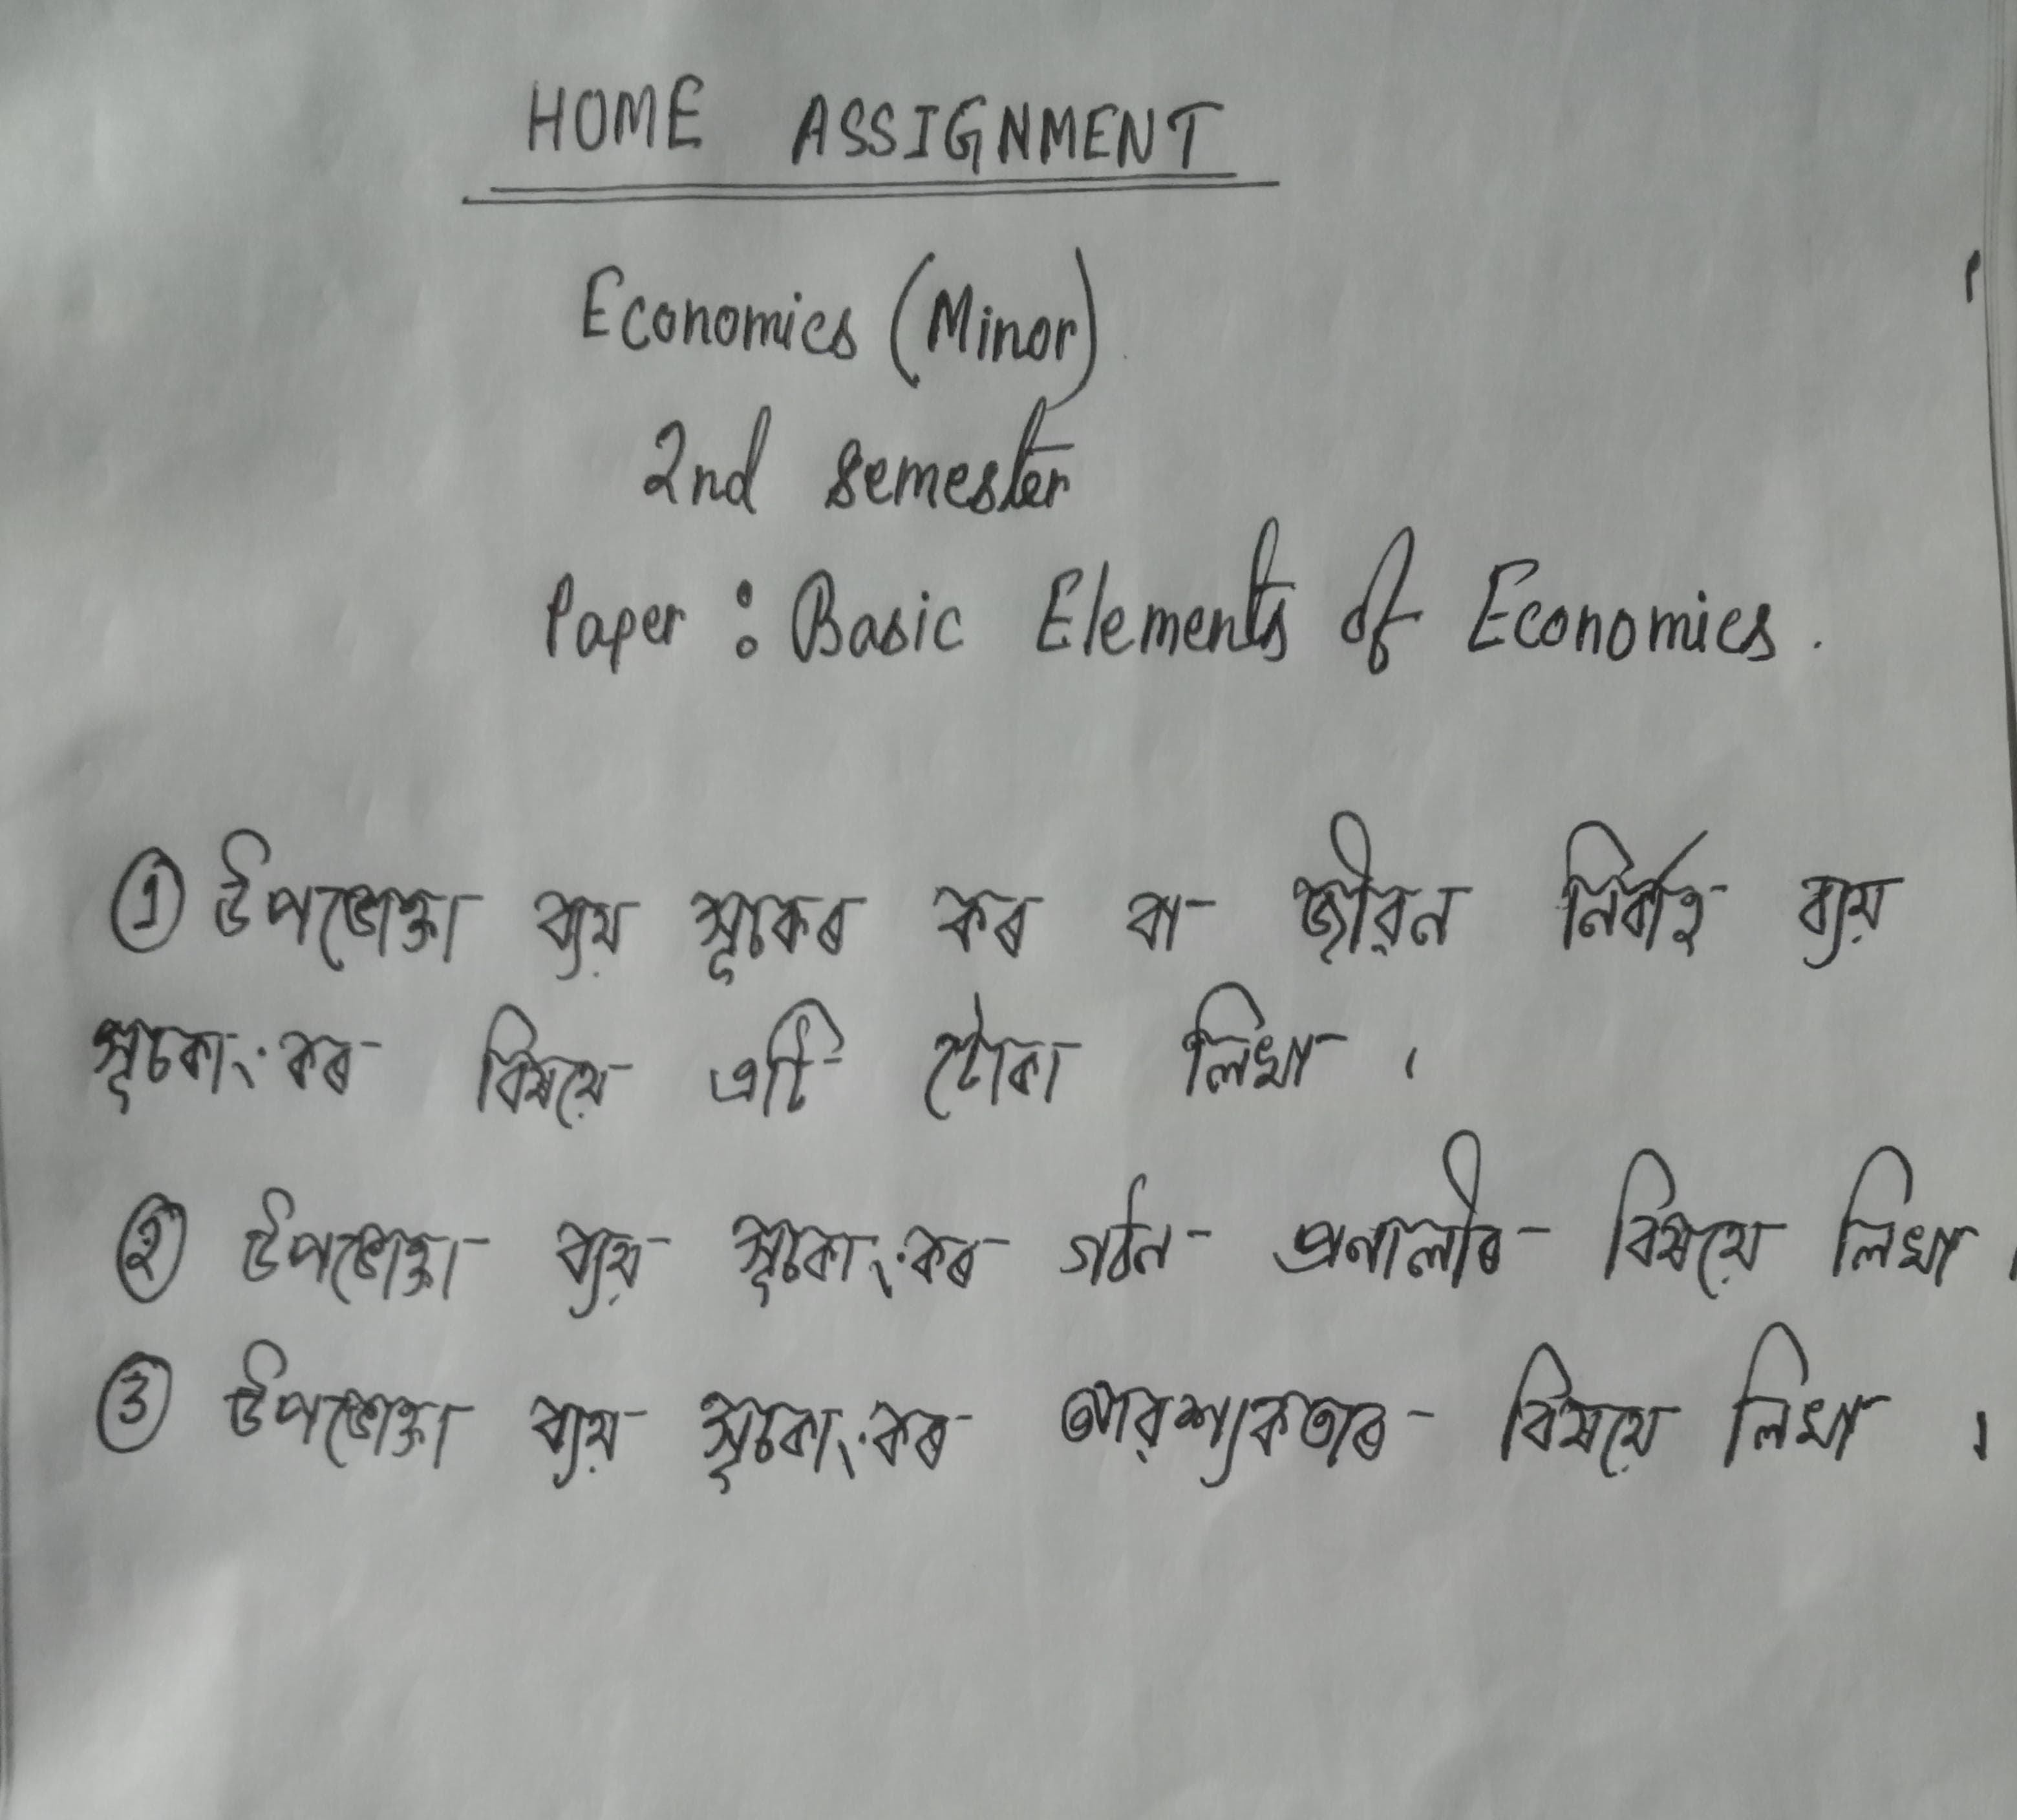 HOME ASSIGNMENT
Economics (Minor)
2nd semester
Paper : Basic Elements of Economics.
① উপভোক্তা ব্যয় সূচকৰ কৰ বা জীৱন নিৰ্বাহ ব্যয়
সূচকাংকৰ বিষয়ে এটি টোকা লিখা ।
② উপভোক্তা ব্যয় সূচকাংকৰ গঠন প্ৰনালীৰ বিষয়ে লিখা ।
③ উপভোক্তা ব্যয় সূচকাংকৰ আৱশ্যকতাৰ বিষয়ে লিখা ।